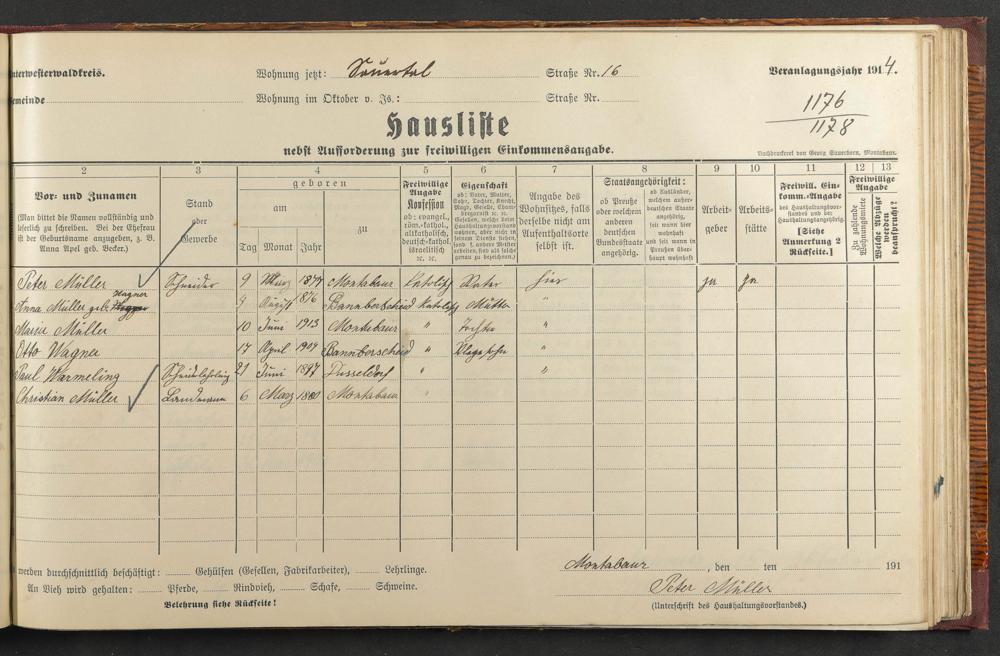 nterwesterwaldkreis. Wohnung jetzt: Sauertal Straße Nr. 16 Veranlagungsjahr 1914.
emeinde Wohnung im Oktober v. Js.: Straße Nr.
1176
1178
Hausliste
nebst Aufforderung zur freiwilligen Einkommensangabe.
Buchdruckerei von Georg Sauerborn, Montabaur.
2 3 4 5 6 7 8 9 10 11 12 13
Vor- und Zunamen
(Man bittet die Namen vollständig und
leserlich zu schreiben. Bei der Ehefrau
ist der Geburtsname anzugeben, z. B.
Anna Apel geb. Becker.)
Stand
oder
Gewerbe
geboren
am
zu
Tag Monat Jahr
Freiwillige
Angabe
Konfession
ob: evangel.,
röm.-kathol.,
altkatholisch,
deutsch-kathol.
israelitisch
ꝛc. ꝛc.
Eigenschaft
ob: Vater, Mutter,
Sohn, Tochter, Knecht,
Magd, Geselle,
Angabe des
Wohnsitzes, falls
derselbe nicht am
Aufenthaltsorte
selbst ist.
Staatsangehörigkeit:
ob Preuße
oder welchem
anderen
deutschen
Bundesstaate
angehörig.
ob Ausländer,
welchem außer-
deutschen Staate
angehörig,
seit wann hier
wohnhaft
und seit wann in
Preußen über-
haupt wohnhaft
Arbeit-
geber
Arbeits-
stätte
Freiwill. Ein-
komm.-Angabe
des Haushaltungsvor-
standes und der
Haushaltungsangehörig.
[Siehe
Anmerkung 2
Rückseite.]
Freiwillige
Angabe
Zu zahlende
Wohnungsmiete
Welche Abzüge
werden
beansprucht?
Peter Müller Schneider 9 März 1874 Montabaur katolisch Vater hier ja ja
Anna Müller geb. Wagner 9 August 1876 Bannberscheid katolisch Mutter "
Maria Müller 10 Juni 1913 Montabaur " Tochter "
Otto Wagner 17 April 1904 Bannberscheid " "
Paul Warmeling 21 Juni 1897 Dusseldorf " "
Christian Müller Landmann 6 März Montabaur "
werden durchschnittlich beschäftigt: Gehülfen (Gesellen, Fabrikarbeiter), Lehrlinge.
An Vieh wird gehalten: Pferde, Rindvieh, Schafe, Schweine.
Belehrung siehe Rückseite!
Montabaur, den ten 191
Peter Müller
(Unterschrift des Haushaltungsvorstandes.)